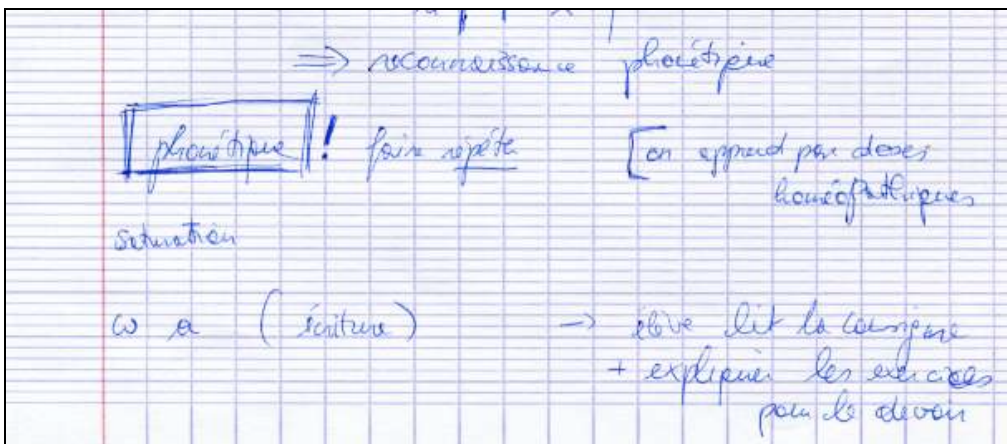 ⇒ reconnaissance phonétique
phonétique ! faire répéter [on apprend par doses
homéopathiques
saturation
(écriture) → élève lit la consigne
+ expliquer les exercices
pour le devoir